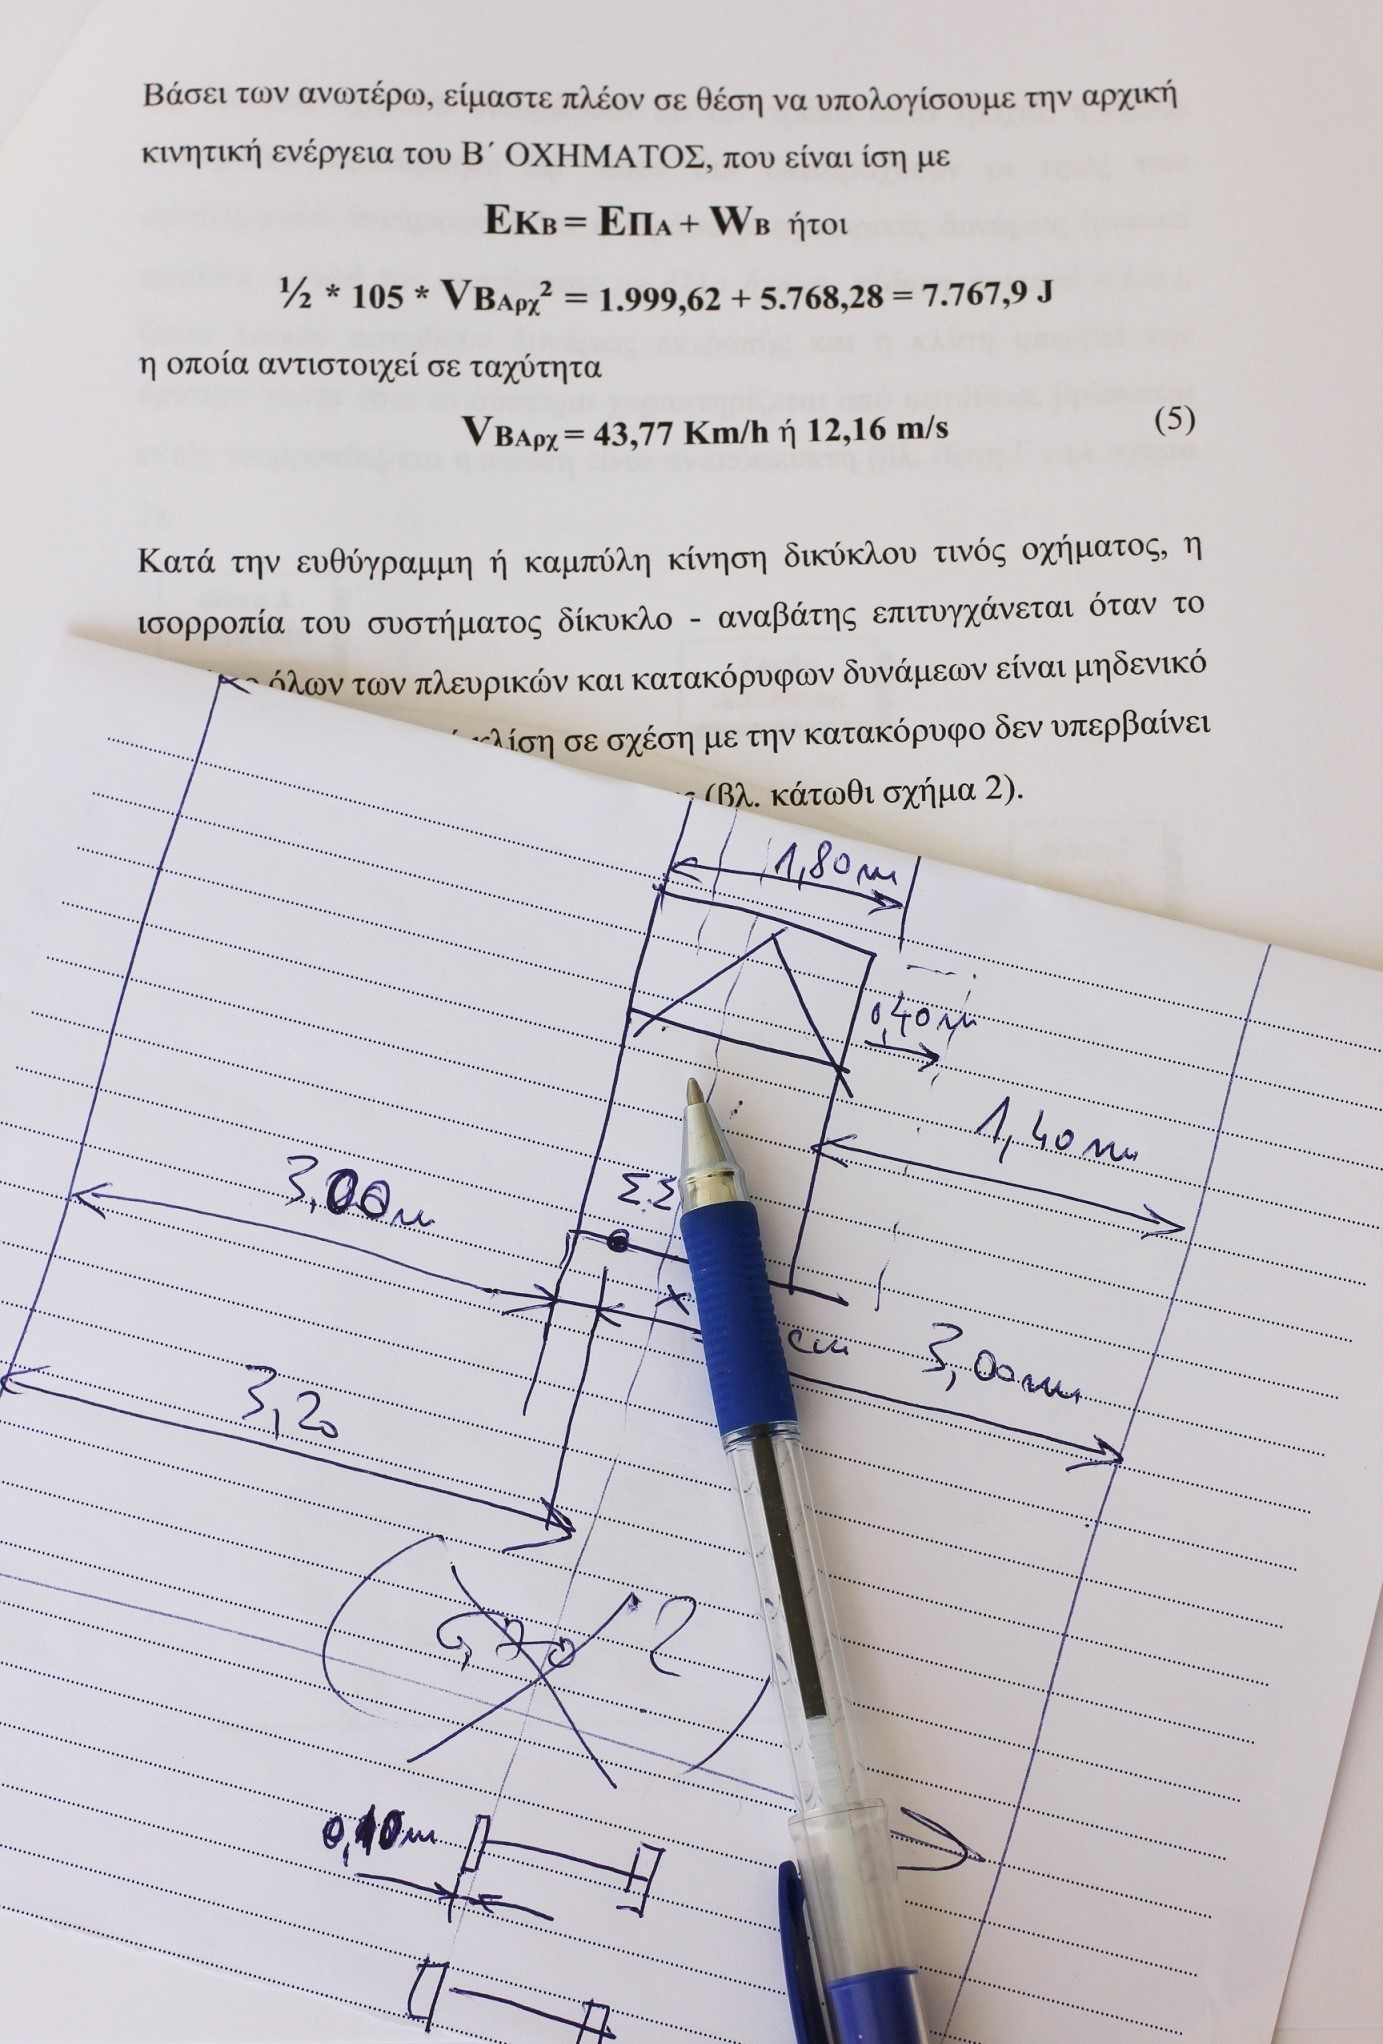 Βάσει των ανωτέρω, είμαστε πλέον σε θέση να υπολογίσουμε την αρχική
κινητική ενέργεια του Β΄ ΟΧΗΜΑΤΟΣ, που είναι ίση με
ΕΚΒ = ΕΠΑ + WΒ ήτοι
½ * 105 * VΒΑρχ² = 1.999,62 + 5.768,28 = 7.767,9 J
η οποία αντιστοιχεί σε ταχύτητα
VΒΑρχ = 43,77 Km/h ή 12,16 m/s (5)
Κατά την ευθύγραμμη ή καμπύλη κίνηση δικύκλου τινός οχήματος, η
ισορροπία του συστήματος δίκυκλο - αναβάτης επιτυγχάνεται όταν το
όλων των πλευρικών και κατακόρυφων δυνάμεων είναι μηδενικό
κλίση σε σχέση με την κατακόρυφο δεν υπερβαίνει
(βλ. κάτωθι σχήμα 2).
1,80m
0,40m
1,40m
3,00m
Σ.Σ
x
cm
3,00m
3,20
0,10m